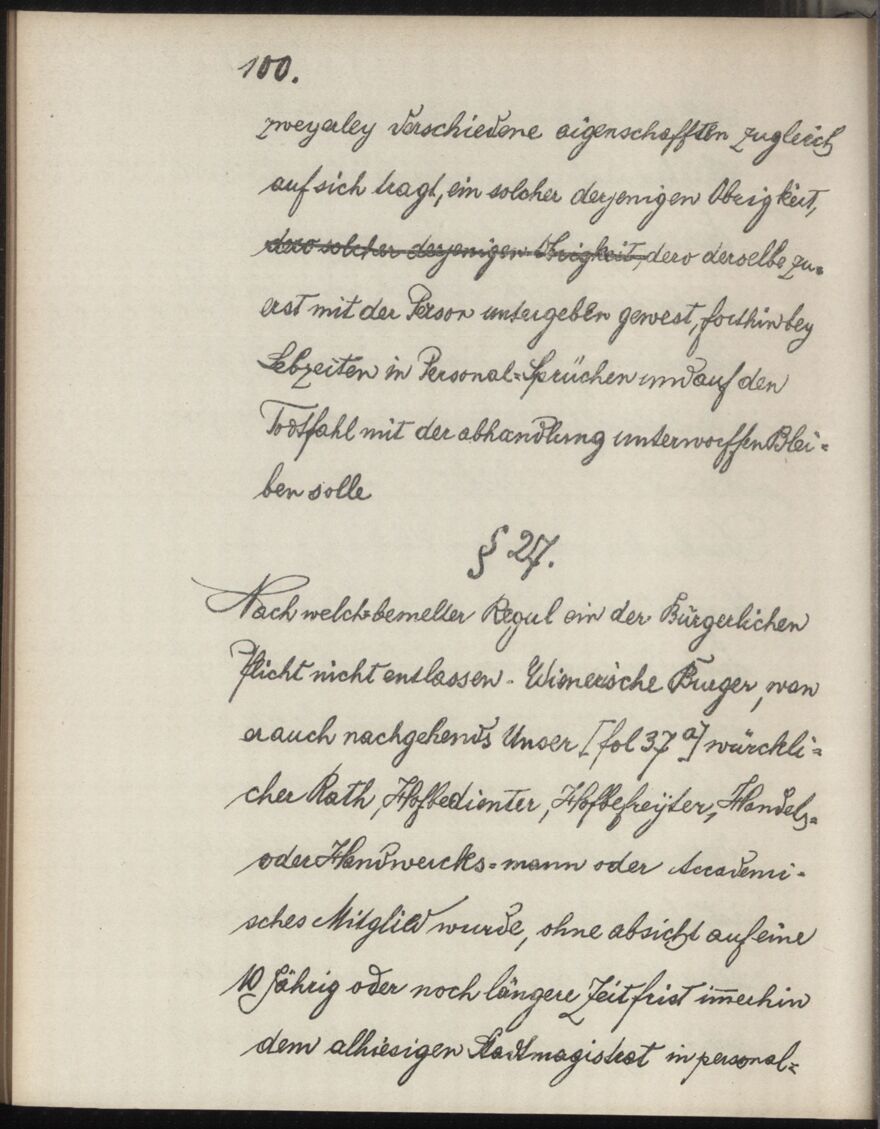 100.
zweyerley verschiedene aigenschafften zugleich
auf sich tragt, ein solcher derjenigen Obrigkeit,
dero solcher derjenigen Obrigkeit, dero derselbe zu=
erst mit der Person untergeben gewest, forthin bey
Lebzeiten in Personal=Sprüchen und auf den
Todtfahl mit der abhandlung unterworffen Blei=
ben solle
§ 27.
Nach welch=bemelter Regul ein der Bürgerlichen
Pflicht nicht entlassen. Wienerische Burger, wan
er auch nachgehends Unser [fol 37 a] würckli=
cher Rath, Hofbedienter, Hofbefreyter, Handels=
oder Handwercks=mann oder Accademi=
sches Mitglied wurde, ohne absicht auf eine
10 Jährig oder noch längere Zeitfrist im̅erhin
dem alhiesigen Stadtmagistrat in personal=